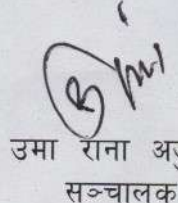 उमा राना
सञ्चालक